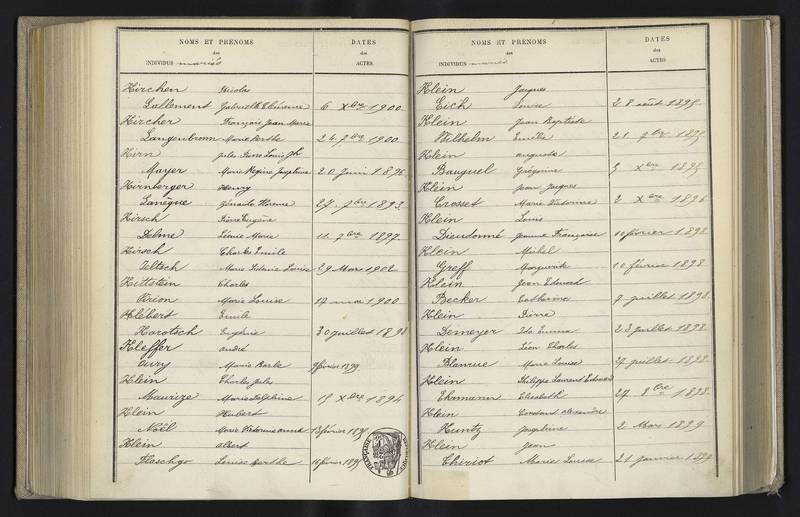 NOMS ET PRÉNOMS
des
INDIVIDUS mariés
DATES
des
ACTES.
Kirchen Nicolas
Lallement Gabrielle Clémence 6 Xbre 1900
Kircher François Jean Marie
Langenbronn Marie Berthe 24 9bre 1900
Kirn Jules Pierre Louis Jh
Mayer Marie Régine Joséphine 20 Juin 1896
Kirnberger Henry
Lanèque Zénaïde Florence 27 1893
Kirsch Pierre Eugène
Delme Léonie Marie 11 9bre 1897
Kirsch Charles Emile
Teltsch Marie Louise 29 Mars 1902
Kittstein Charles
Pirion Marie Louise 17 mai 1900
Klébert Emile
Harotsch Euphrie 30 juillet 1898
Kleffer andré
Cury Marie Barbe 9 février 1899
Klein Charles Jules
Maurize Marie Delphine 15 Xbre 1894
Klein Hubert
Noël Marie Victorine 13 février 1895
Klein albert
Flaschgo Louise Berthe 16 février 1895
NOMS ET PRÉNOMS
des
INDIVIDUS mariés
DATES
des
ACTES.
Klein Jacques
Eich Louise 28 août 1895
Klein Jean Baptiste
Wilhelm Emélie 21 9bre 1895
Klein auguste
Bauguel Grégorine 5 Xbre 1895
Klein Jean Jacques
Crosset Marie Victorine 2 Xbre 1896
Klein Louis
Dieudonné Jeanne Françoise 10 février 1898
Klein Michel
Greff Marguerite 10 février 1898
Klein Jean Edouard
Becker Catherine 9 juillet 1898
Klein Pierre
Demeyer Ida Emma 23 juillet 1898
Klein Léon Charles
Blanrue Marie Louise 27 juillet 1898
Klein Philippe Laurent Edouard
Ehrmann Elisabeth 27 8bre 1898
Klein Constant alexandre
Kuntz Joséphine 2 Mars 1899
Klein Jean
Thiriot Marie Louise 28 Janvier 1899